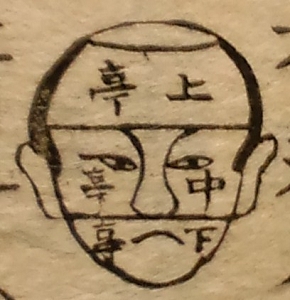 上亭
中亭
下亭